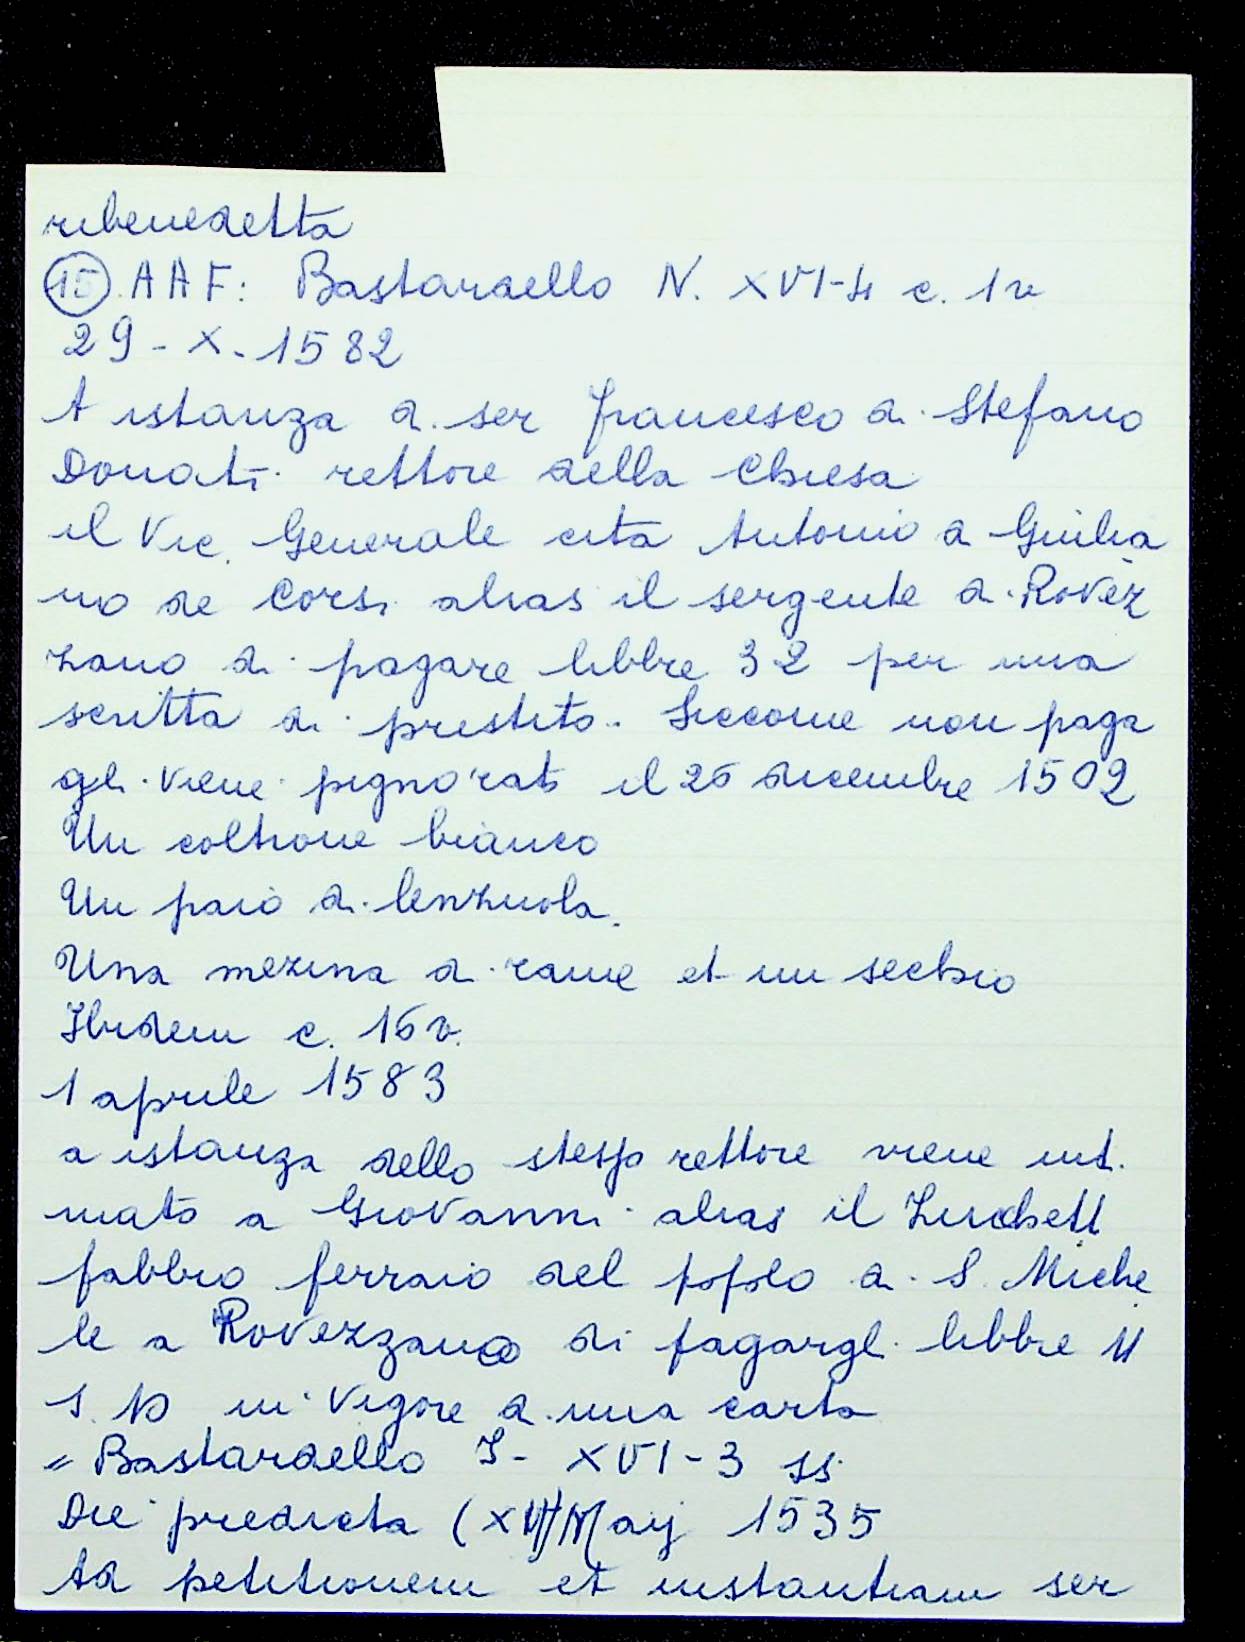 ribenedetta
(15) AAF: Bastardello N. XVI-4 c. 1v
29-X-1582
A istanza di ser Francesco di Stefano
Donati rettore della Chiesa
il Vic. Generale cita Antonio di Giulia
no de Corsi alias il sergente di Rovez
zano di pagare libbre 32 per una
scritta di prestito. Siccome non paga
gli viene pignorati il 26 dicembre 1502
Un coltrone bianco
Un paio di lenzuola.
Una mezina di rame et un secchio
Ibidem c. 16v.
1 aprile 1583
a istanza dello stesso rettore viene inti
mato a Giovanni alias il
fabbro ferraio del popolo di S. Miche
le a Rovezzano di pagargli libbre 11
s. 10 in vigore di una carta
= Bastardello I- XVI-3 ss.
Die predicta ( May 1535
Ad petitionem et instantiam ser